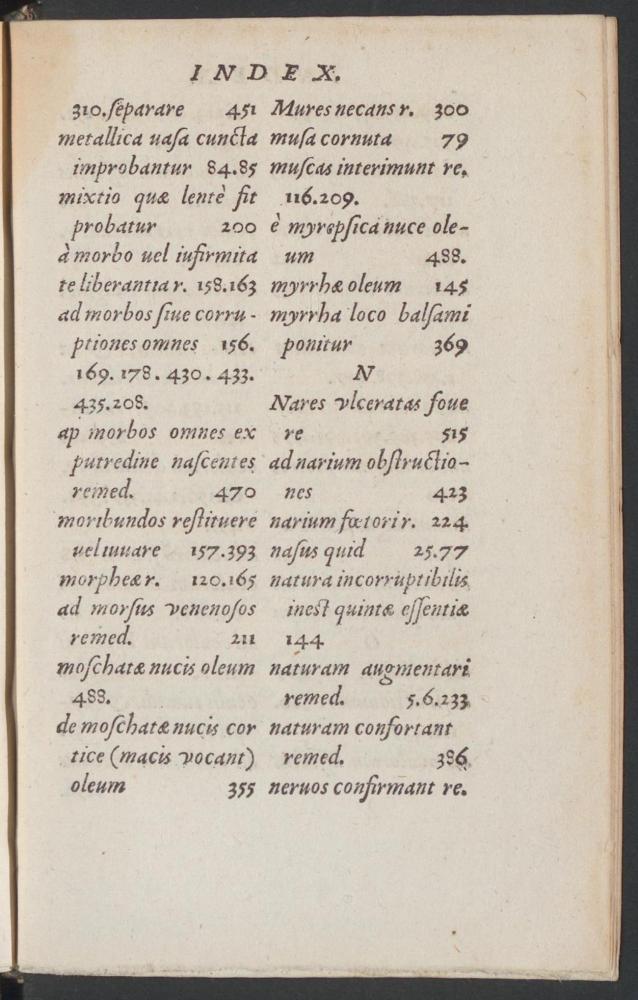 INDEX.
310. ſeparare 451
metallica uaſa cuncta
improbantur 84.85
mixtio quæ lentè fit
probatur 200
à morbo uel iufirmita
te liberantia r. 158.163
ad morbos ſiue corru-
ptiones omnes 156.
169. 178. 430. 433.
435.208.
ap morbos omnes ex
putredine naſcentes
remed. 470
moribundos reſtituere
uel iuuare 157.393
morpheæ r. 120.165
ad morſus venenoſos
remed. 211
moſchatæ nucis oleum
488.
de moſchatæ nucis cor
tice (macis vocant)
oleum 355
Mures necans r. 300
muſa cornuta 79
muſcas interimunt re.
116.209.
è myrepſica nuce ole-
um 488.
myrrhæ oleum 145
myrrha loco balſami
ponitur 369
N
Nares vlceratas foue
re 515
ad narium obſtructio-
nes 423
narium fœtori r. 224
naſus quid 25.77
natura incorruptibilis
ineſt quintæ eſſentiæ
144
naturam augmentari
remed. 5.6.233
naturam confortant
remed. 386
neruos confirmant re.